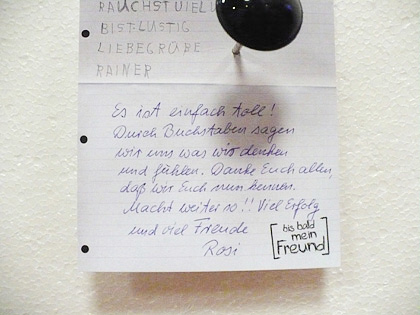 RAUCHST VIEL
BIST LUSTIG
LIEBE GRÜßE
RAINER
Es ist einfach toll!
Durch Buchstaben sagen
wir uns was wir denken
und fühlen. Danke Euch allen,
daß wir Euch nun kennen.
Macht weiter so!! Viel Erfolg
und viel Freude
Rosi
[bis bald
mein
Freund]